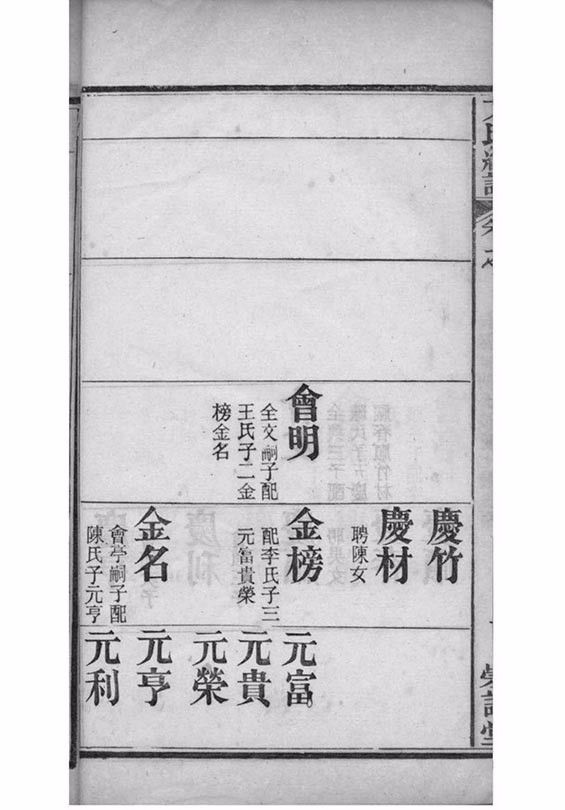 會明
全文嗣子配
王氏子二金
榜金名
慶竹
慶材
聘陳女
金榜
配李氏子三
元富貴榮
金名
會亭嗣子配
陳氏子元亨
元富
元貴
元榮
元亨
元利